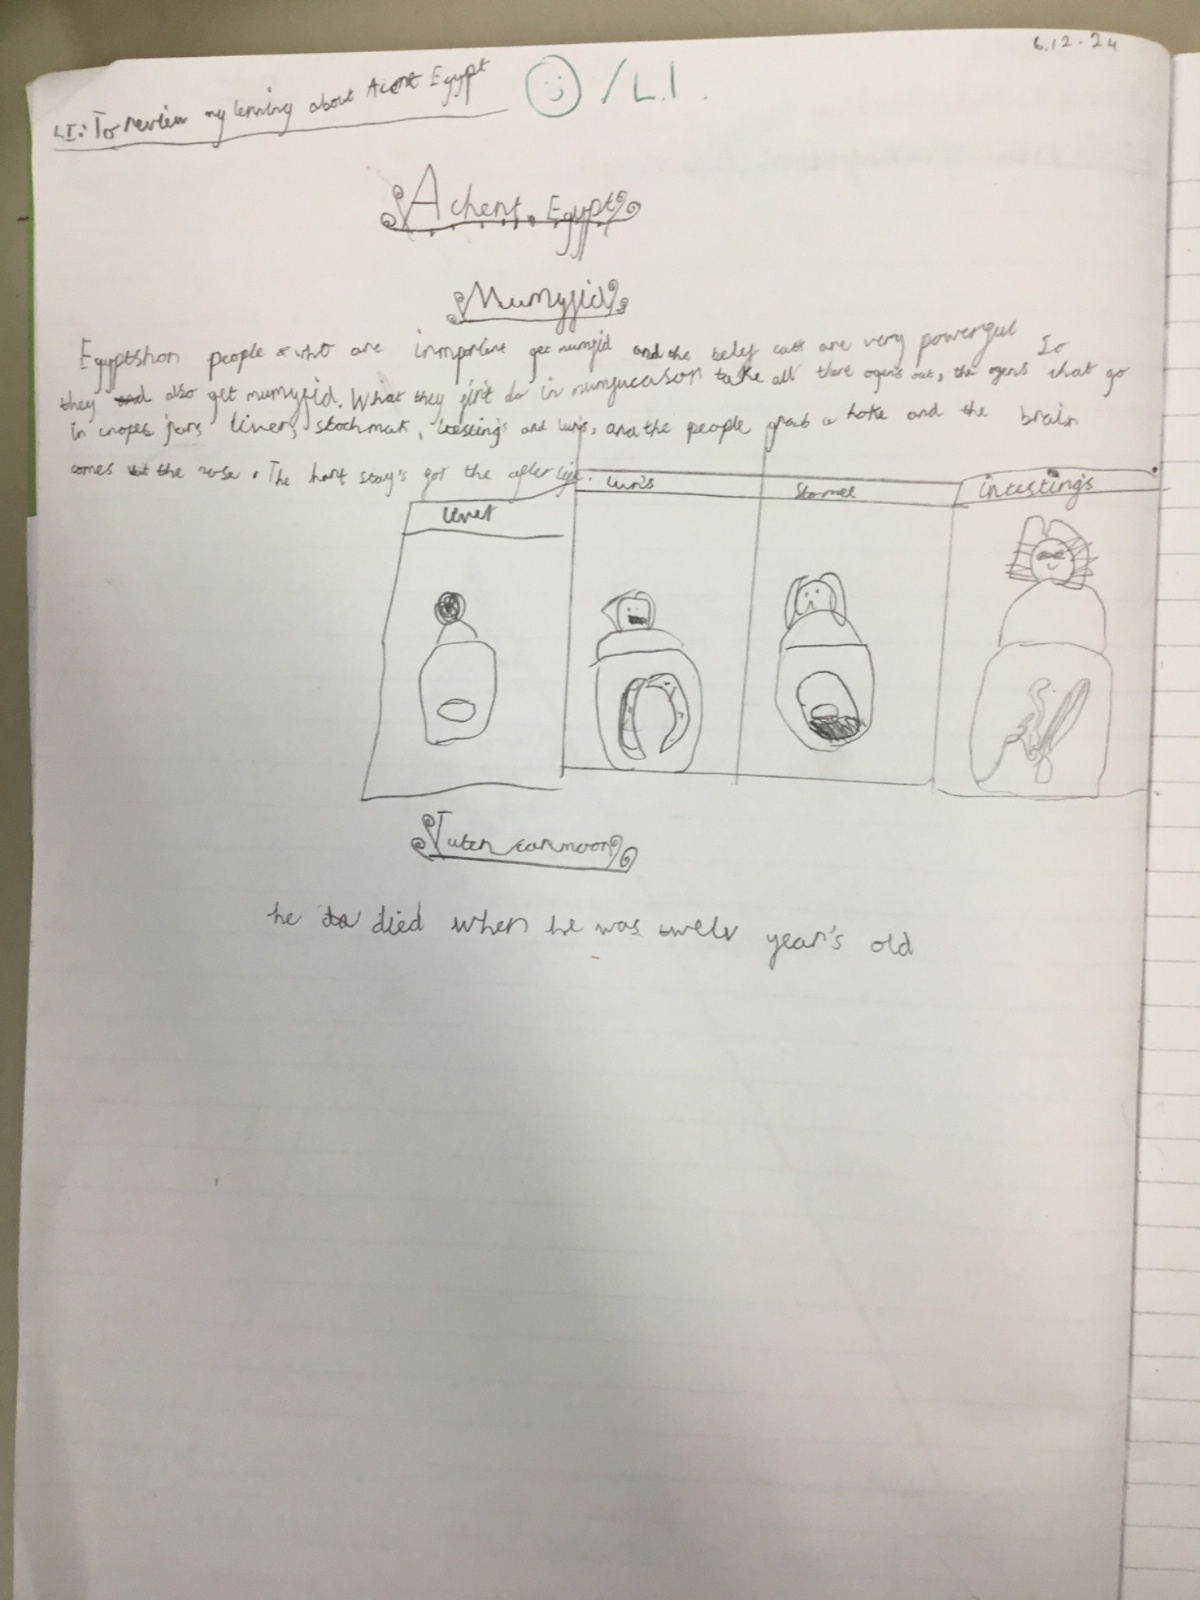 6.12.24
LI: To review my lerning about Acent Egypt
/ L.I.
Achent Egypt
Mumyfid
Egyptshon people who are inmportent get mumfid and the belef cats are very powerful So
they also get mumyfid. What they first do in mumfucason take all there ogens out, the ogens that go
in cnopes jars liver, stochmak, intesting's and lun's, and the people grab a hoke and the brain
comes out the nose. The hart stay's for the after life.
liver
lun's
Stomec
intesting's
Tuten carmoon
he died when he was twelv year's old